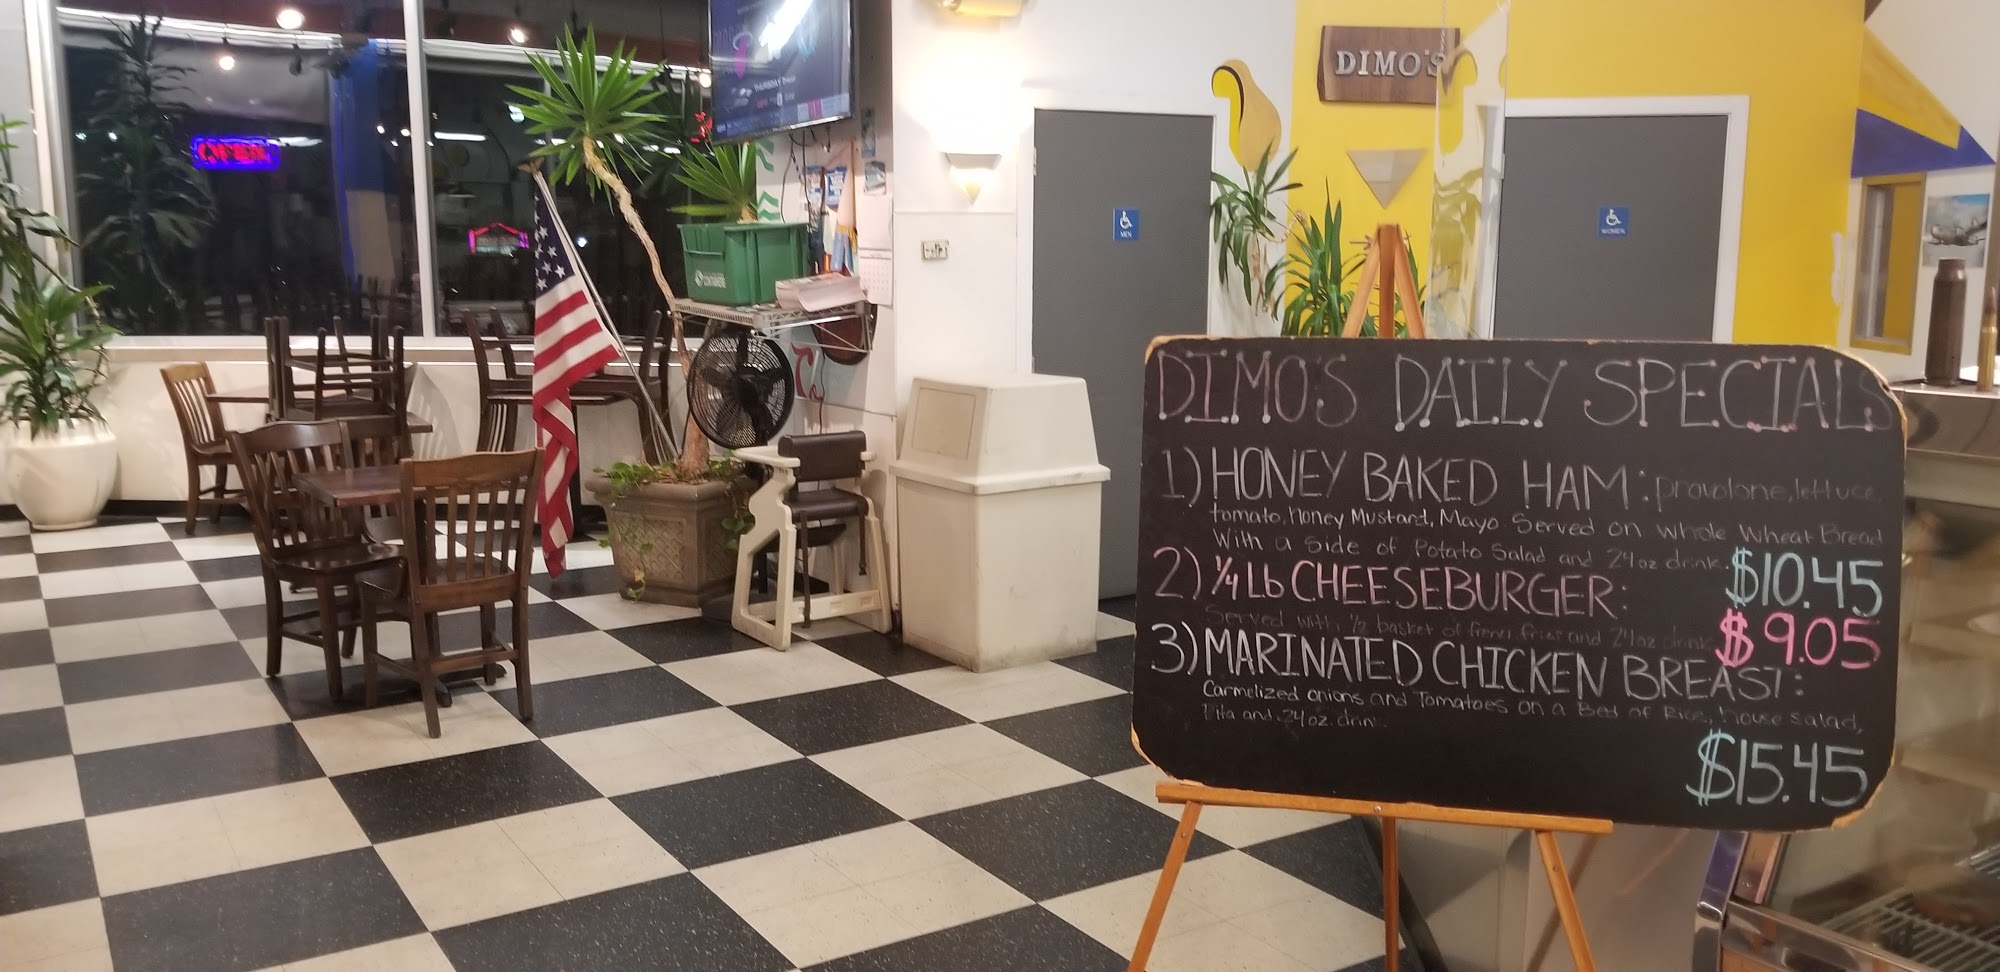 DIMO'S
MEN
WOMEN
DIMO'S DAILY SPECIALS
1) HONEY BAKED HAM: provolone, lettuce,
tomato, Honey Mustard, Mayo Served on Whole Wheat Bread
With a Side of Potato Salad and 24oz drink. $10.45
2) 1/4 Lb CHEESEBURGER:
Served with 1/2 basket of french fries and 24oz drink $9.05
3) MARINATED CHICKEN BREAST:
Carmelized onions and Tomatoes on a Bed of Rice, house salad,
Pita and 24oz. drin
$15.45